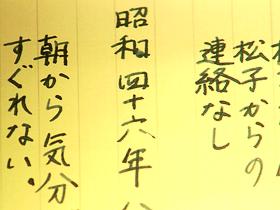 松子からの
連絡なし
昭和四十六年
朝から気分
すぐれない。